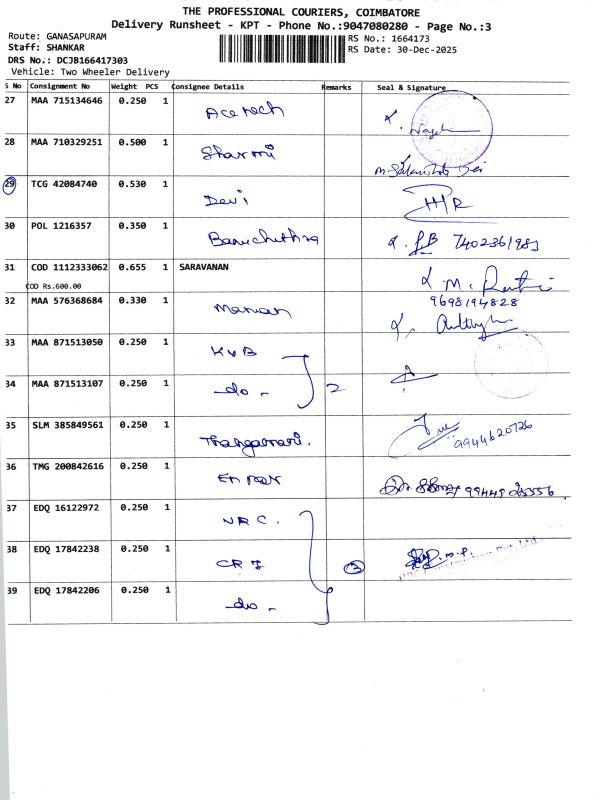 THE PROFESSIONAL COURIERS, COIMBATORE
Delivery Runsheet - KPT - Phone No.:9047080280 - Page No.:3
Route: GANASAPURAM
RS No.: 1664173
Staff: SHANKAR
RS Date: 30-Dec-2025
DRS No.: DCJB166417303
Vehicle: Two Wheeler Delivery
S No Consignment No Weight PCS Consignee Details Remarks Seal & Signature
27 MAA 715134646 0.250 1
28 MAA 710329251 0.500 1 Sharmi
29 TCG 42084740 0.530 1 Devi
30 POL 1216357 0.350 1
31 COD 1112333062 0.655 1 SARAVANAN
COD Rs.600.00
9698194828
32 MAA 576368684 0.330 1
33 MAA 871513050 0.250 1 KVB
34 MAA 871513107 0.250 1 do - 2
35 SLM 385849561 0.250 1 9944620726
36 TMG 200842616 0.250 1
37 EDQ 16122972 0.250 1 NRC.
38 EDQ 17842238 0.250 1 3
39 EDQ 17842206 0.250 1 do -